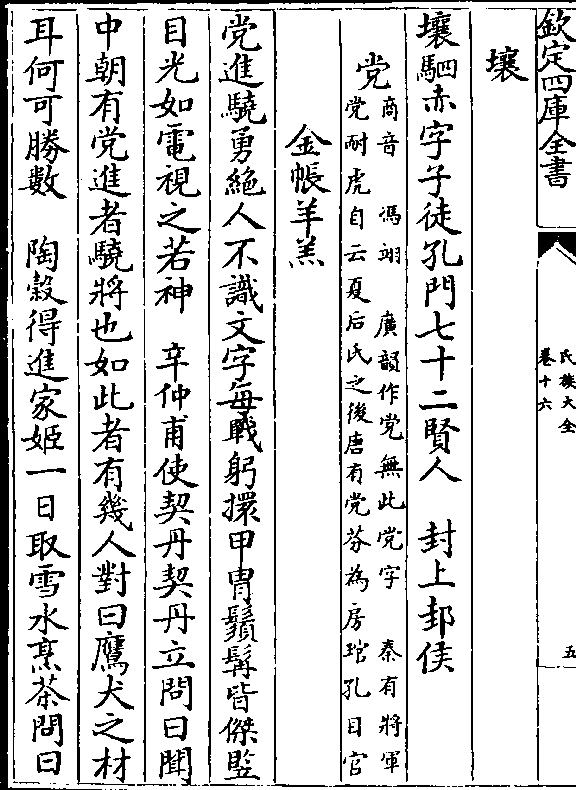 欽定四庫全書
氏族大全
卷十六
五
壤
壤駟赤字子徒孔門七十二賢人　封上邽侯
党
商音　馮翊　廣韻作党無此党字　秦有將軍
党耐虎自云夏后氏之後唐有党芬為房琯孔目官
金帳羊羔
党進驍勇絶人不識文字每戰躬擐甲冑鬚髯皆傑竪
目光如電視之若神　辛仲甫使契丹契丹立問曰聞
中朝有党進者驍將也如此者有幾人對曰鷹犬之材
耳何可勝數　陶穀得進家姬一日取雪水烹茶問曰